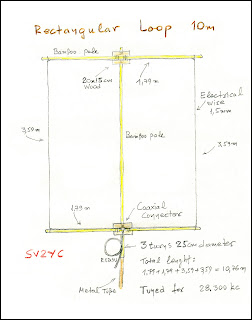 Rectangular Loop 10m
Bamboo pole
20x15cm
Wood
1,79m
Electrical
wire
1,5mm
3,59m
Bamboo pole
3,59m
1,79m
Coaxial
Connector
3 turns 25cm diameter
RG58
SV2YC
Total lenght:
1,79+1,79+3,59+3,59 = 10,76m
Metal Tube
Tuned for 28.300 kc